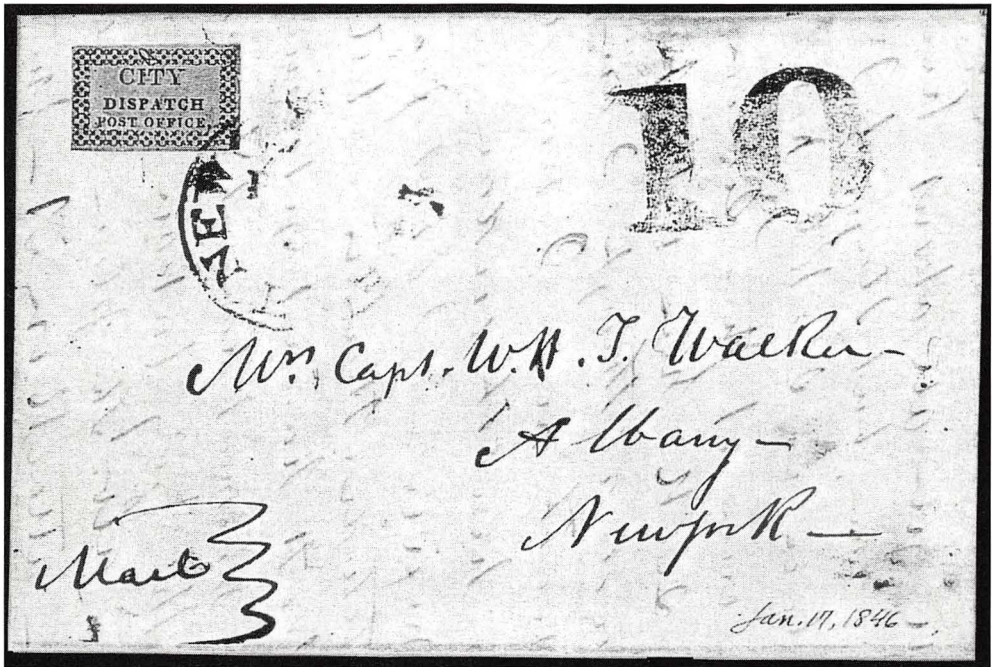 CITY
DISPATCH
POST OFFICE
10
NEW
Mrs. Capt. W. H. T. Walker –
Albany –
New York –
Mail
Jan. 17, 1846